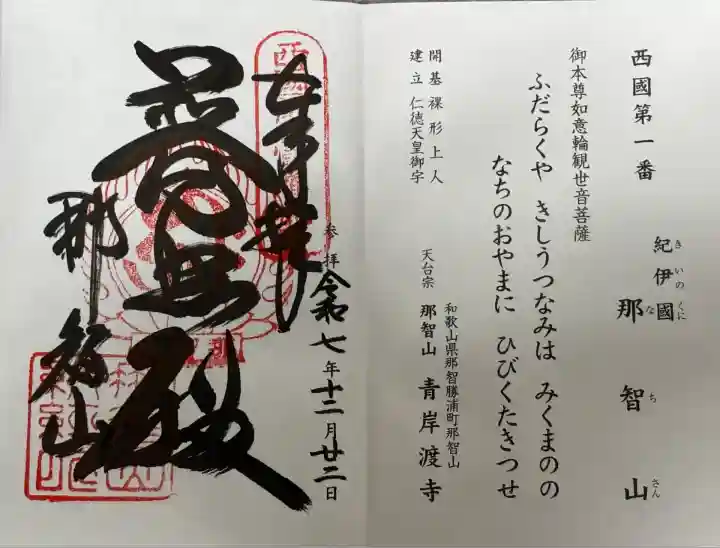 西國第一番
紀伊國 那智山
きいのくに なちさん
御本尊如意輪観世音菩薩
ふだらくや きしうつなみは みくまのの
なちのおやまに ひびくたきつせ
開基 裸形上人
建立 仁徳天皇御宇
和歌山県那智勝浦町那智山
天台宗 那智山 青岸渡寺
奉拝
参拝 令和七年十二月廿二日
普照殿
那智山